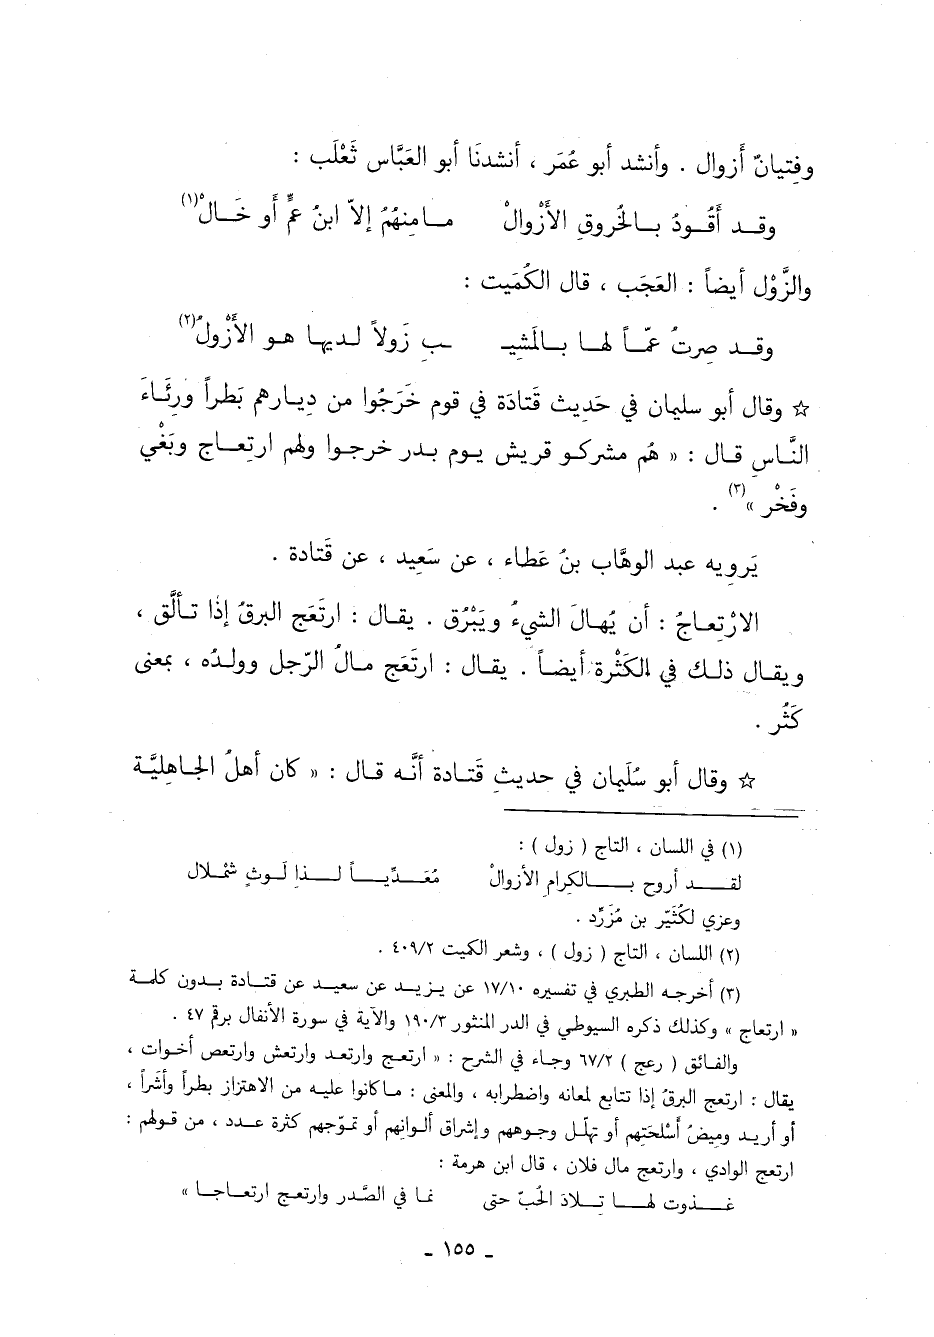 وفتيانٌ أزوال . وأنشد أبو عُمَر ، أنشدنَا أبو العَبَّاس ثَعْلَب :
وقـد أَقُـودُ بـالخُروقِ الأَزْوالْ مـامنهُمُ إلاّ ابنُ عمٍّ أو خَـالْ(١)
والزَّوْل أيضاً : العَجَب ، قال الكُمَيت :
وقـد صِرتُ عمّـاً لهـا بـالمَشِيـ ـب زَولاً لـديهـا هـو الأَزْولُ(٢)
☆ وقال أبو سليمان في حَديث قَتادَة في قوم خَرَجُوا من دِيـارهم بَطراً ورِئَـاءَ
النَّاسِ قـال : « هُم مشركـو قريش يـوم بـدر خرجـوا ولهم ارتِعـاج وبَغْي
وفَخْر »(٣) .
يَرويه عبد الوهَّاب بنُ عَطاء ، عن سَعِيد ، عن قَتادة .
الارْتِعـاجُ : أن يُهـالَ الشيءُ ويَبْرُق . يقـال : ارتَعَج البرقُ إذا تـألَّق ،
ويقـال ذلـك في الكَثْرة أيضـاً . يقـال : ارتَعَج مـالُ الرّجل وولـدُه ، بمعنى
كَثُر .
☆ وقـال أبو سُلَيمان في حديثِ قَتـادة أنَّـه قـال : « كان أهلُ الجـاهليَّـة
(١) في اللسان ، التاج ( زول ) :
لقـد أروح بـالكرام الأزوالْ مُعَـدِّيـاً لـذا لَـوثٍ شمْلال
وعزي لكُثَيّر بن مُزَرِّد .
(٢) اللسان ، التاج ( زول ) ، وشعر الكميت ٤٠٩/٢ .
(٣) أخرجـه الطبري في تفسيره ١٧/١٠ عن يـزيـد عن سعيـد عن قتـادة بـدون كلمـة
« ارتعاج » وكذلك ذكره السيوطي في الدر المنثور ١٩٠/٣ والآية في سورة الأنفال برقم ٤٧ .
والفائق ( رعج ) ٦٧/٢ وجـاء في الشرح : « ارتعـج وارتعـد وارتعش وارتعص أخـوات ،
يقال : ارتعج البرقُ إذا تتابع لمعانه واضطرابه ، والمعنى : مـاكانوا عليـه من الاهتزاز بطراً وأشراً ،
أو أريـد وميضُ أسْلحتِهم أو تهلّـل وجـوههم وإشراق ألـوانهم أو تموّجهم كثرة عـدد ، من قـولهم :
ارتعج الوادي ، وارتعج مال فلان ، قال ابن هرمة :
غـذوت لهـا تـلادَ الحُبّ حتى نما في الصَّدر وارتعـج ارتعـاجـا »
ـ ١٥٥ ـ